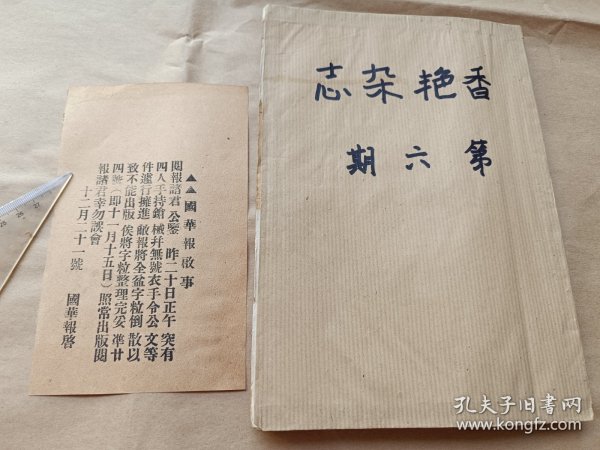 香艳杂志
第六期
▲▲國華報啟事
閱報諸君公鑒 昨二十日正午 突有
四人手持鎗械幷無號衣手令公文等
件遽行擁進 敝報將全盆字粒倒散以
致不能出版 俟將字粒整理完妥 準廿
四號(即十一月十五日)照常出版閱
報諸君幸勿誤會
十二月二十一號 國華報啓
孔夫子旧书网
www.kongfz.com